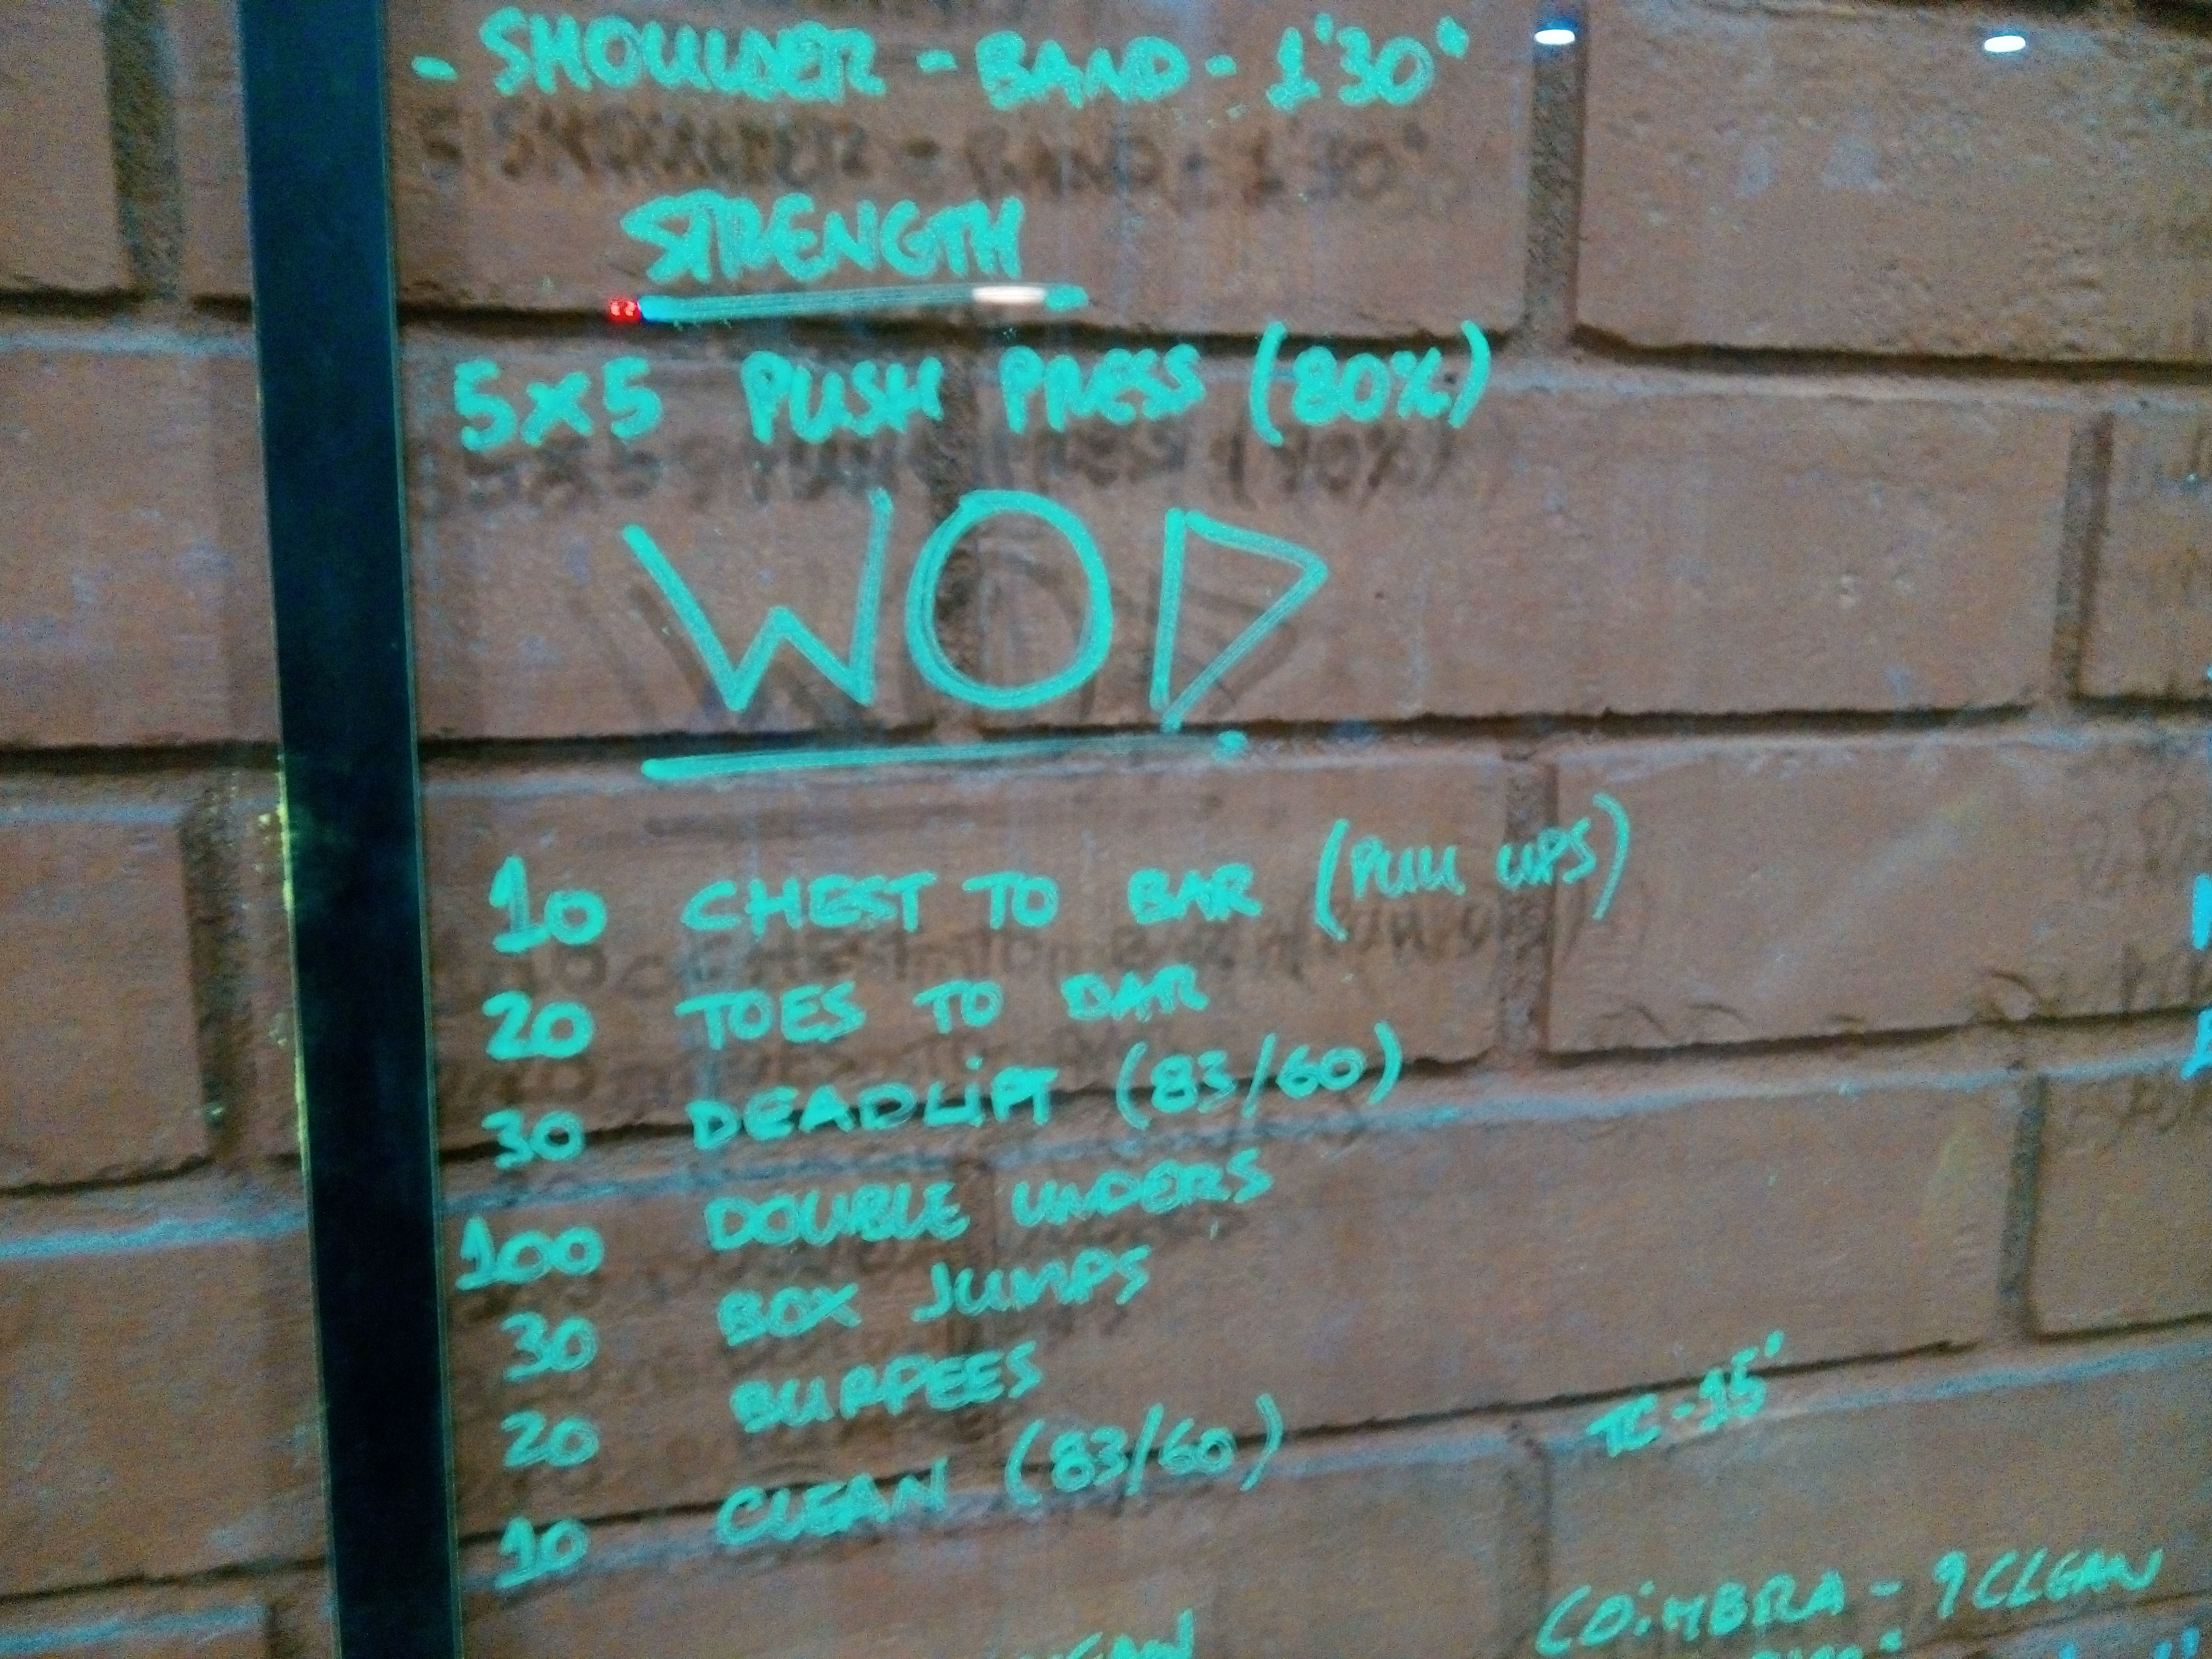 - SHOULDER - BAND - 1'30"
STRENGTH
5x5 PUSH PRESS (80%)
WOD
10 CHEST TO BAR (PULL UPS)
20 TOES TO BAR
30 DEADLIFT (83/60)
100 DOUBLE UNDERS
30 BOX JUMPS
20 BURPEES
10 CLEAN (83/60)
TC - 15'
COIMBRA - 9 CLEAN